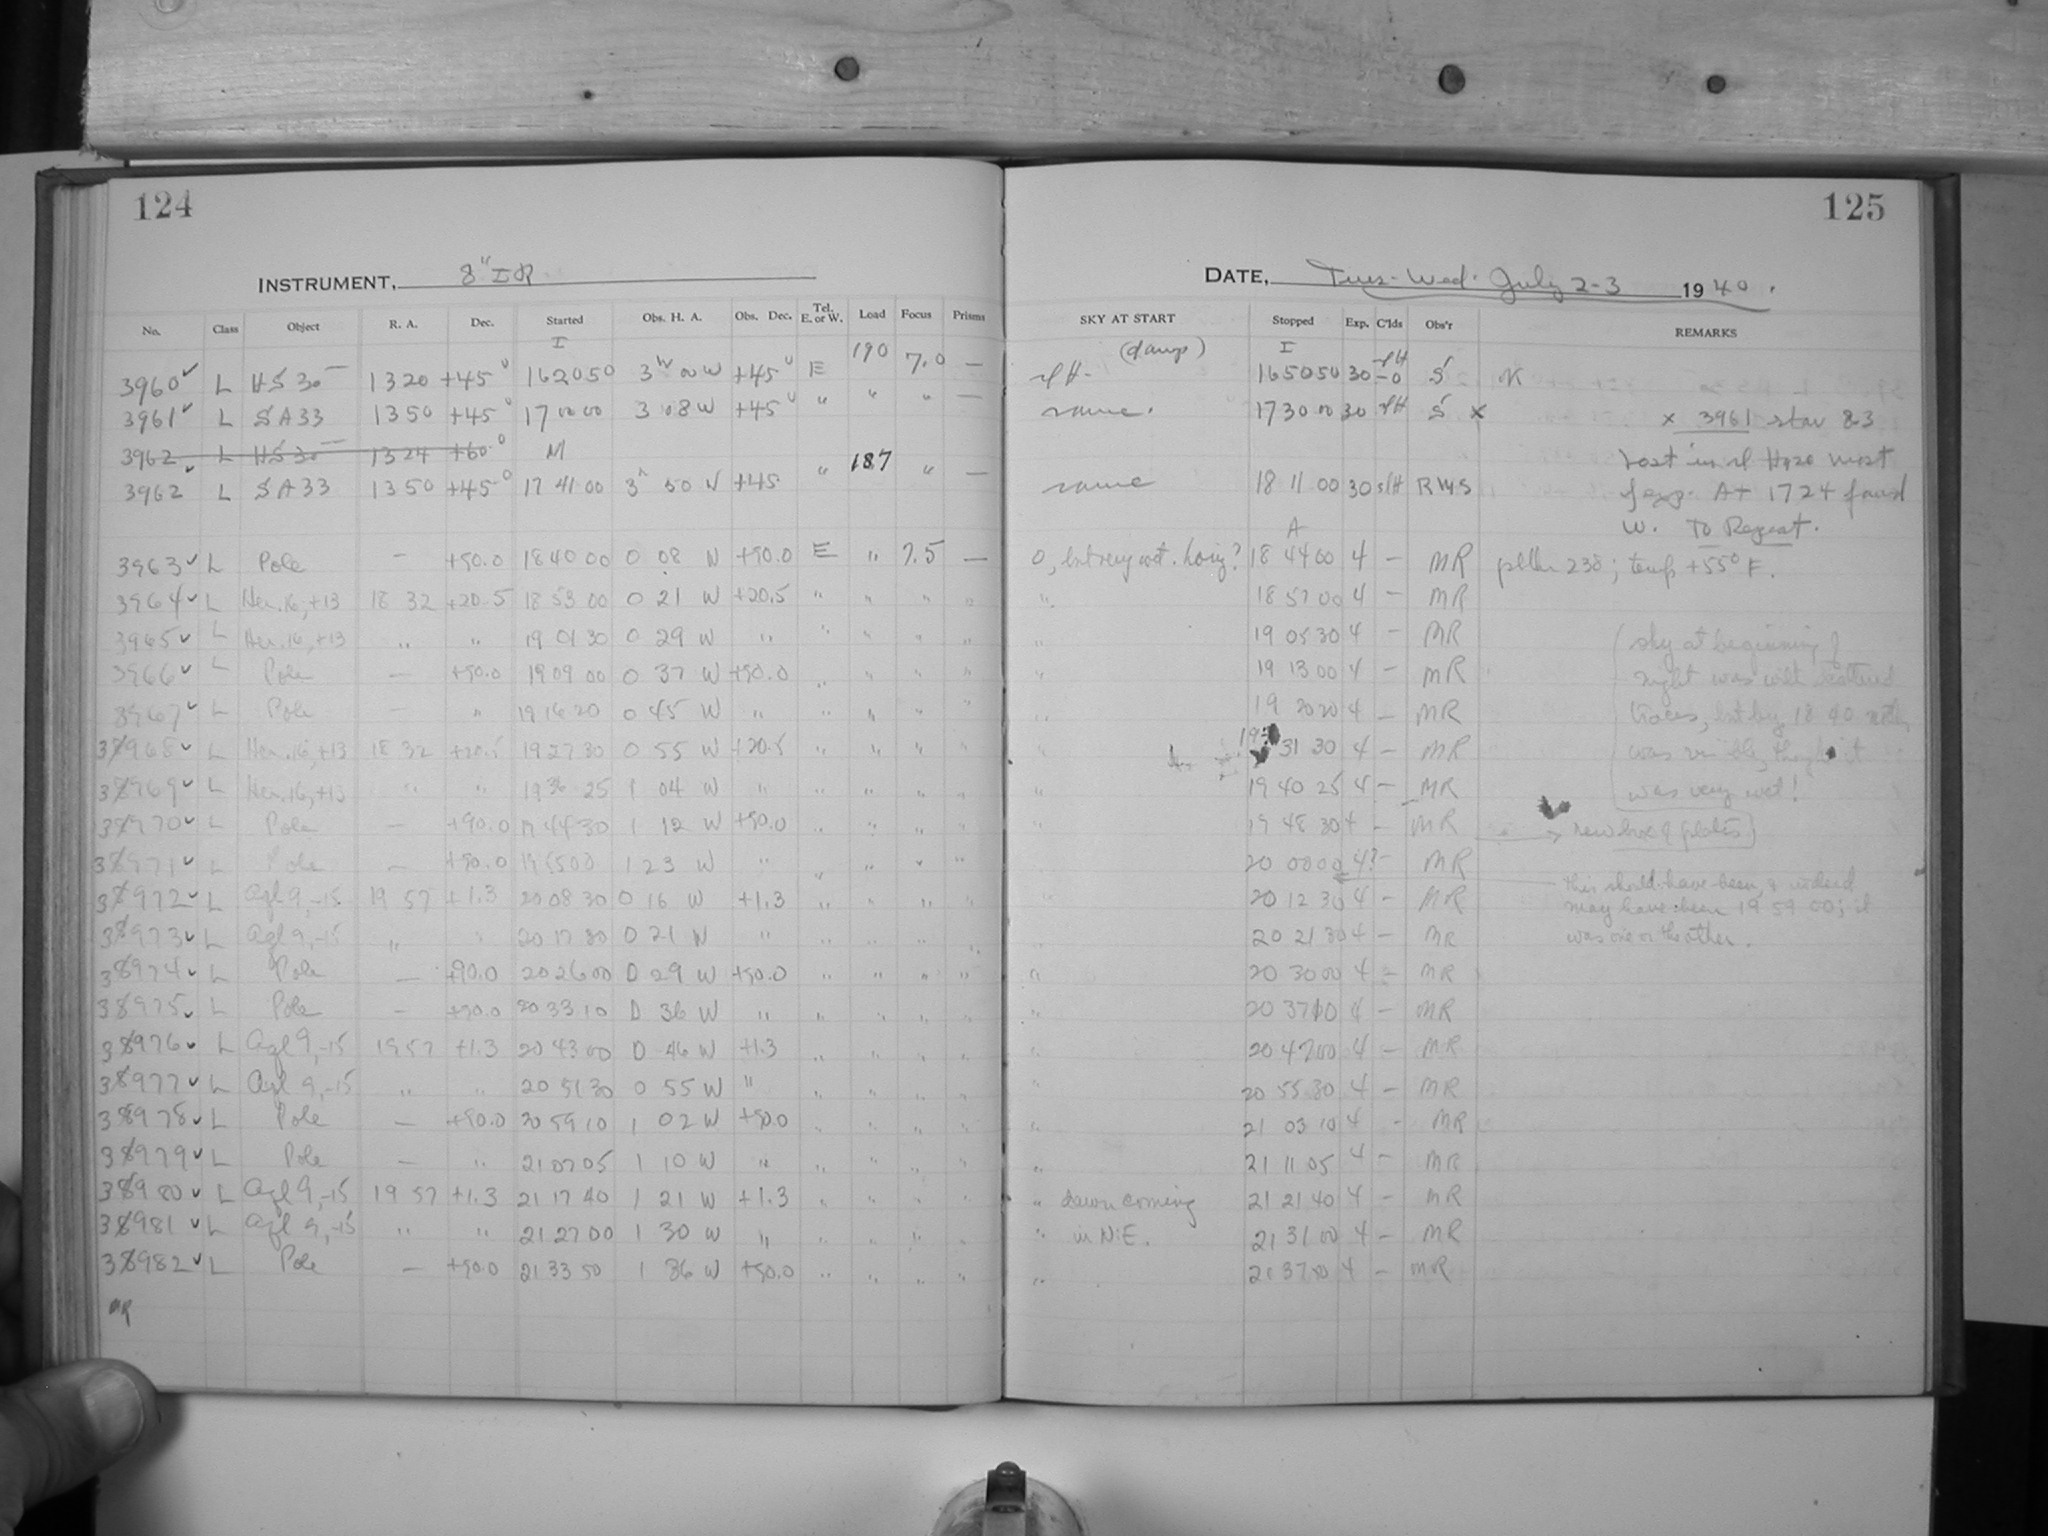 124
INSTRUMENT, 8" IR
No. Class Object R. A. Dec. Started Obs. H. A. Obs. Dec. Tel. E. or W. Load Focus Prisms
I
3960 L HS 30 1320 +45° 162050 3 00 W +45° E 190 7.0 —
3961 L SA33 1350 +45° 17 00 00 3 08 W +45° " " " —
3962 L HS 30 1324 +60° M
3962 L SA33 1350 +45° 17 41 00 3h 50 W +45 " 187 " —
3963 L Pole — +90.0 18 40 00 0 08 W +90.0 E " 7.5 —
3964 L Her. 16, +13 18 32 +20.5 18 53 00 0 21 W +20.5 " " " "
3965 L Her. 16, +13 " " 19 01 30 0 29 W " " " " "
3966 L Pole — +90.0 19 09 00 0 37 W +90.0 " " " "
3967 L Pole — " 19 16 20 0 45 W " " " " "
3968 L Her. 16, +13 18 32 +20.5 19 27 30 0 55 W +20.5 " " " "
3969 L Her. 16, +13 " " 19 36 25 1 04 W " " " " "
3970 L Pole — +90.0 19 44 30 1 12 W +90.0 " " " "
3971 L Pole — +90.0 1 23 W " " " " "
3972 L Aql 9, -15 19 57 +1.3 20 08 30 0 16 W +1.3 " " " "
3973 L Aql 9, -15 " " 20 17 30 0 21 W " " " " "
3974 L Pole — +90.0 20 26 00 0 29 W +90.0 " " " "
3975 L Pole — +90.0 20 33 10 0 36 W " " " " "
3976 L Aql 9, -15 19 57 +1.3 20 43 00 0 46 W +1.3 " " " "
3977 L Aql 9, -15 " " 20 51 30 0 55 W " " " " "
3978 L Pole — +90.0 20 59 10 1 02 W +90.0 " " " "
3979 L Pole — " 21 07 05 1 10 W " " " " "
3980 L Aql 9, -15 19 57 +1.3 21 17 40 1 21 W +1.3 " " " "
3981 L Aql 9, -15 " " 21 27 00 1 30 W " " " " "
3982 L Pole — +90.0 21 33 50 1 36 W +90.0 " " " "
MR
125
DATE, Tues-Wed. July 2-3 1940.
SKY AT START Stopped Exp. C'lds Obs'r REMARKS
(damp) I
165050 30 S
same. 1730 00 30 S x x 3961 star 83
lost in sl Haze most
same 18 11 00 30 sl H RWS of exp. At 1724 found
A W. To Repeat.
0, but very wet. hazy? 18 44 00 4 — MR 238; temp +55° F.
" 18 57 00 4 — MR
" 19 05 30 4 — MR (sky at beginning of
" 19 13 00 4 — MR night was with scattered
" 19 20 20 4 — MR traces, but by 18 40
" 19 31 30 4 — MR was visible, though it
" 19 40 25 4 — MR was very wet!
19 48 30 4 — MR → new box of plates
20 00 00 4? — MR
" 20 12 30 4 — MR this should have been, & indeed
may have been 19 59 00; it
" 20 21 30 4 — MR was one or the other.
" 20 30 00 4 — MR
" 20 37 10 4 — MR
" 20 47 00 4 — MR
" 20 55 30 4 — MR
" 21 03 10 4 — MR
" 21 11 05 4 — MR
" dawn coming 21 21 40 4 — MR
" in N.E. 21 31 00 4 — MR
" 21 37 50 4 — MR